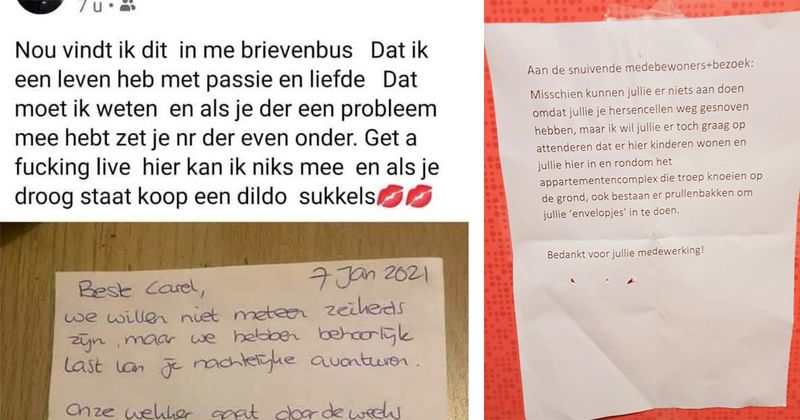 7 u
Nou vindt ik dit in me brievenbus Dat ik
een leven heb met passie en liefde Dat
moet ik weten en als je der een probleem
mee hebt zet je nr der even onder. Get a
fucking live hier kan ik niks mee en als je
droog staat koop een dildo sukkels💋💋
7 Jan 2021
Beste Carel,
we willen niet meteen zeikerds
zijn, maar we hebben behoorlijk
last van je nachtelijke avonturen.
Onze wekker gaat door de weeks
Aan de snuivende medebewoners+bezoek:
Misschien kunnen jullie er niets aan doen
omdat jullie je hersencellen weg gesnoven
hebben, maar ik wil jullie er toch graag op
attenderen dat er hier kinderen wonen en
jullie hier in en rondom het
appartementencomplex die troep knoeien op
de grond, ook bestaan er prullenbakken om
jullie ‘envelopjes’ in te doen.
Bedankt voor jullie medewerking!